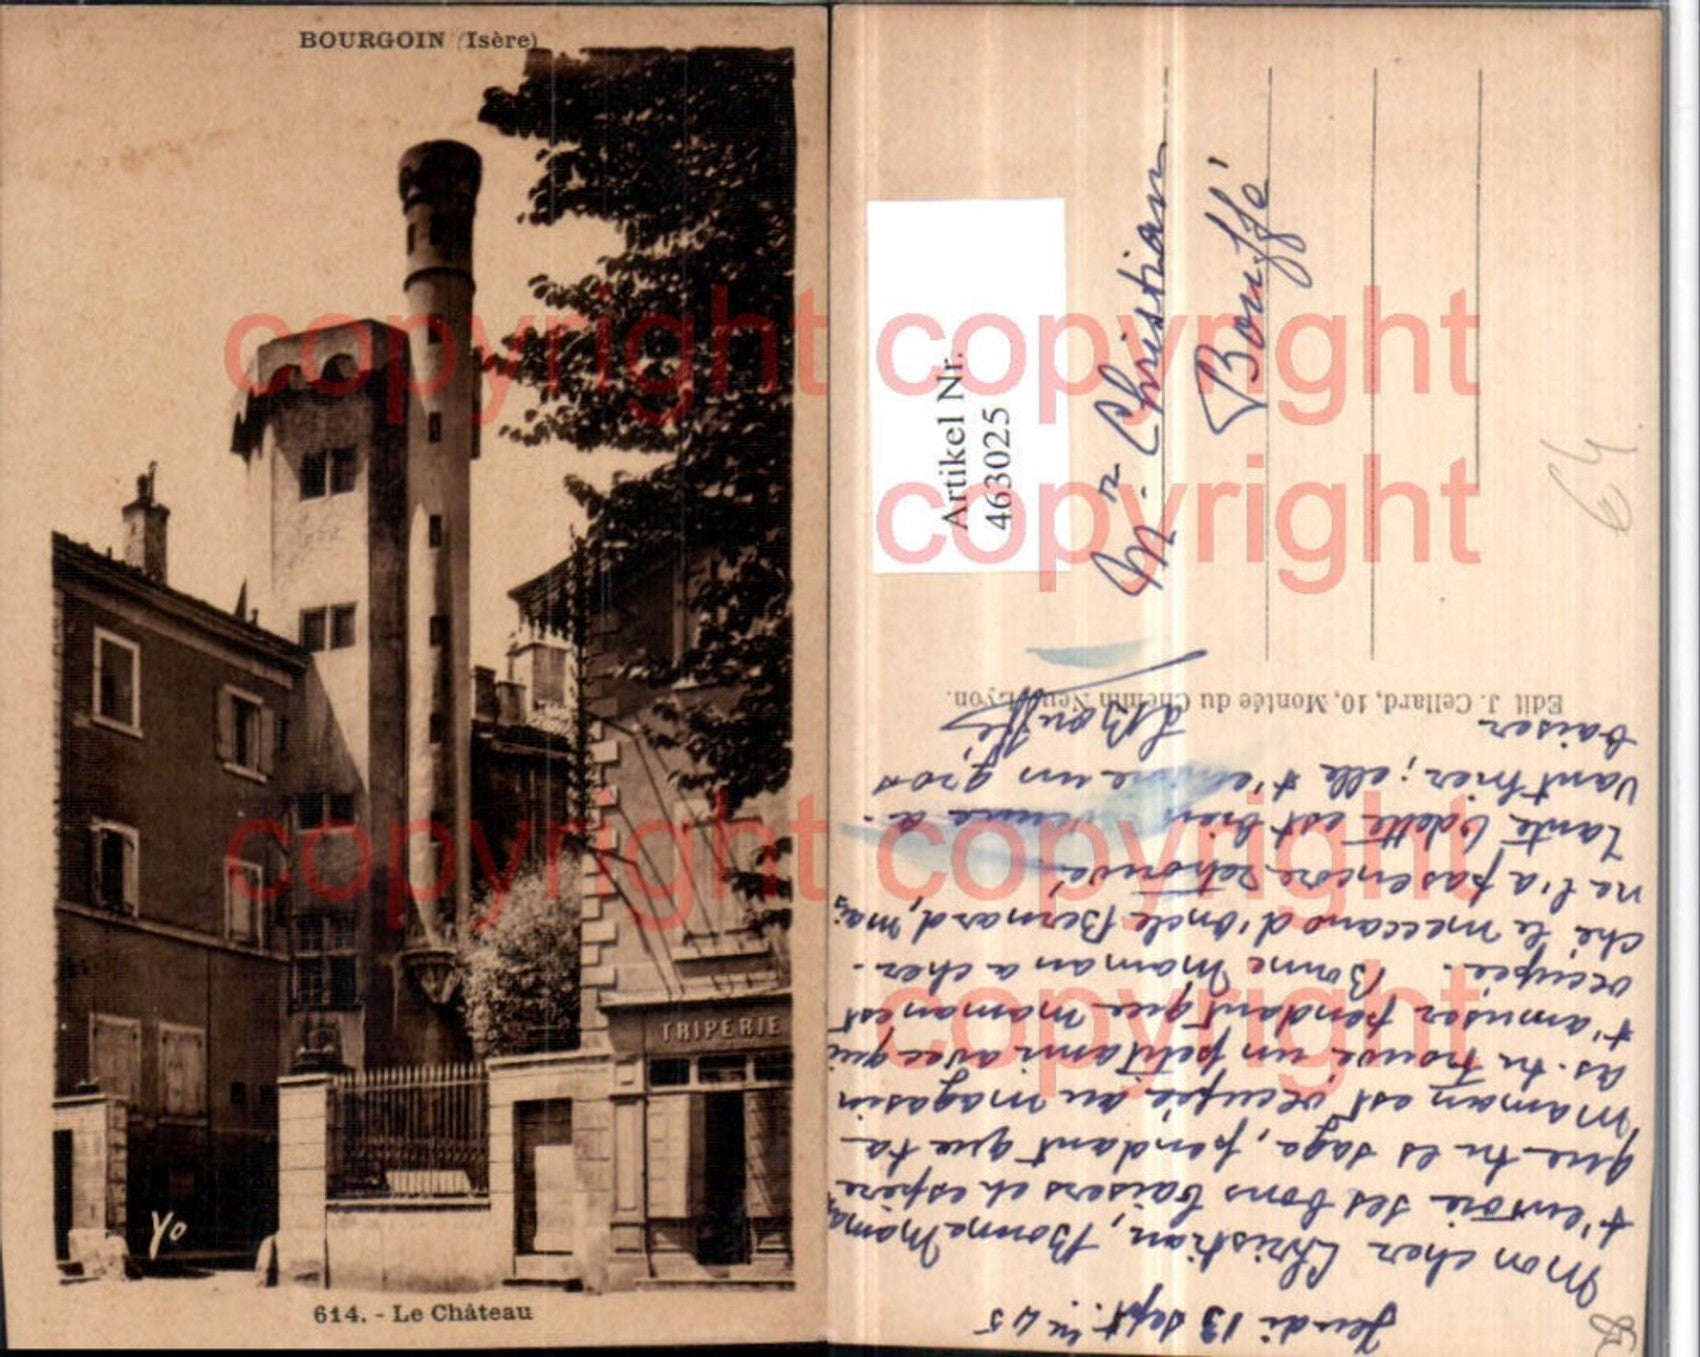 BOURGOIN (Isère)
TRIPERIE
Yo
614. - Le Château
Artikel Nr.
463025
Mr. Christian
Bouffé
64
Edit. J. Cellard, 10, Montée du Chemin Neuf, Lyon.
Jeudi 13 sept. 45
Mon cher Christian, Bonne Maman
t'envoie ses bons baisers et espère
que tu es sage, pendant que ta
maman est occupée au magasin
As-tu trouvé un petit ami avec qui
t'amuser pendant que maman est
occupée. Bonne Maman a cher-
ché le meccano d'oncle Bernard, mais
ne l'a pas encore retrouvé.
Tante Odette est bien venue a-
vant hier; elle t'envoie un gros
baiser
Bouffé
copyright
copyright
copyright
copyright
copyright
copyright